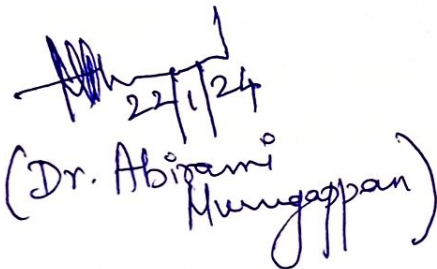 22/1/24
(Dr. Abirami
Murugappan)